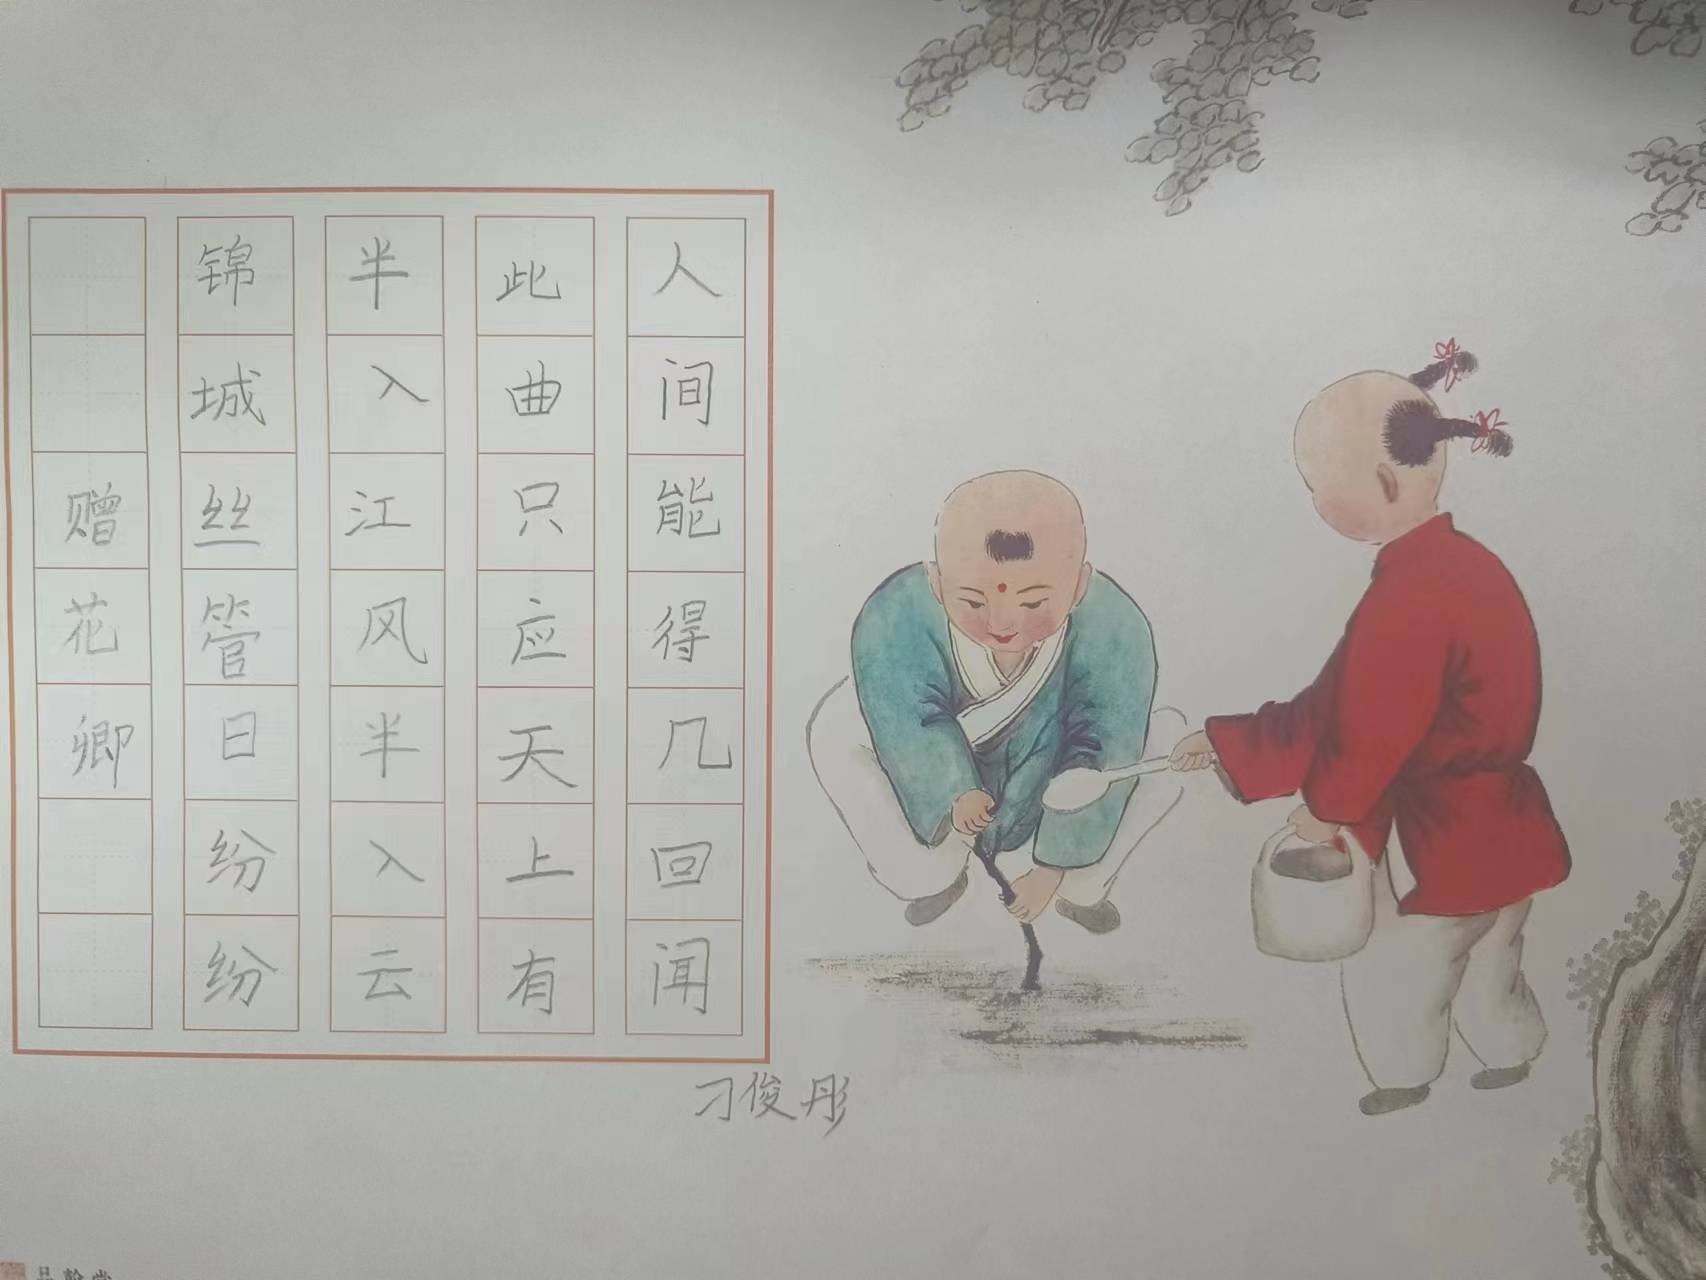 赠花卿
锦城丝管日纷纷
半入江风半入云
此曲只应天上有
人间能得几回闻
刁俊彤